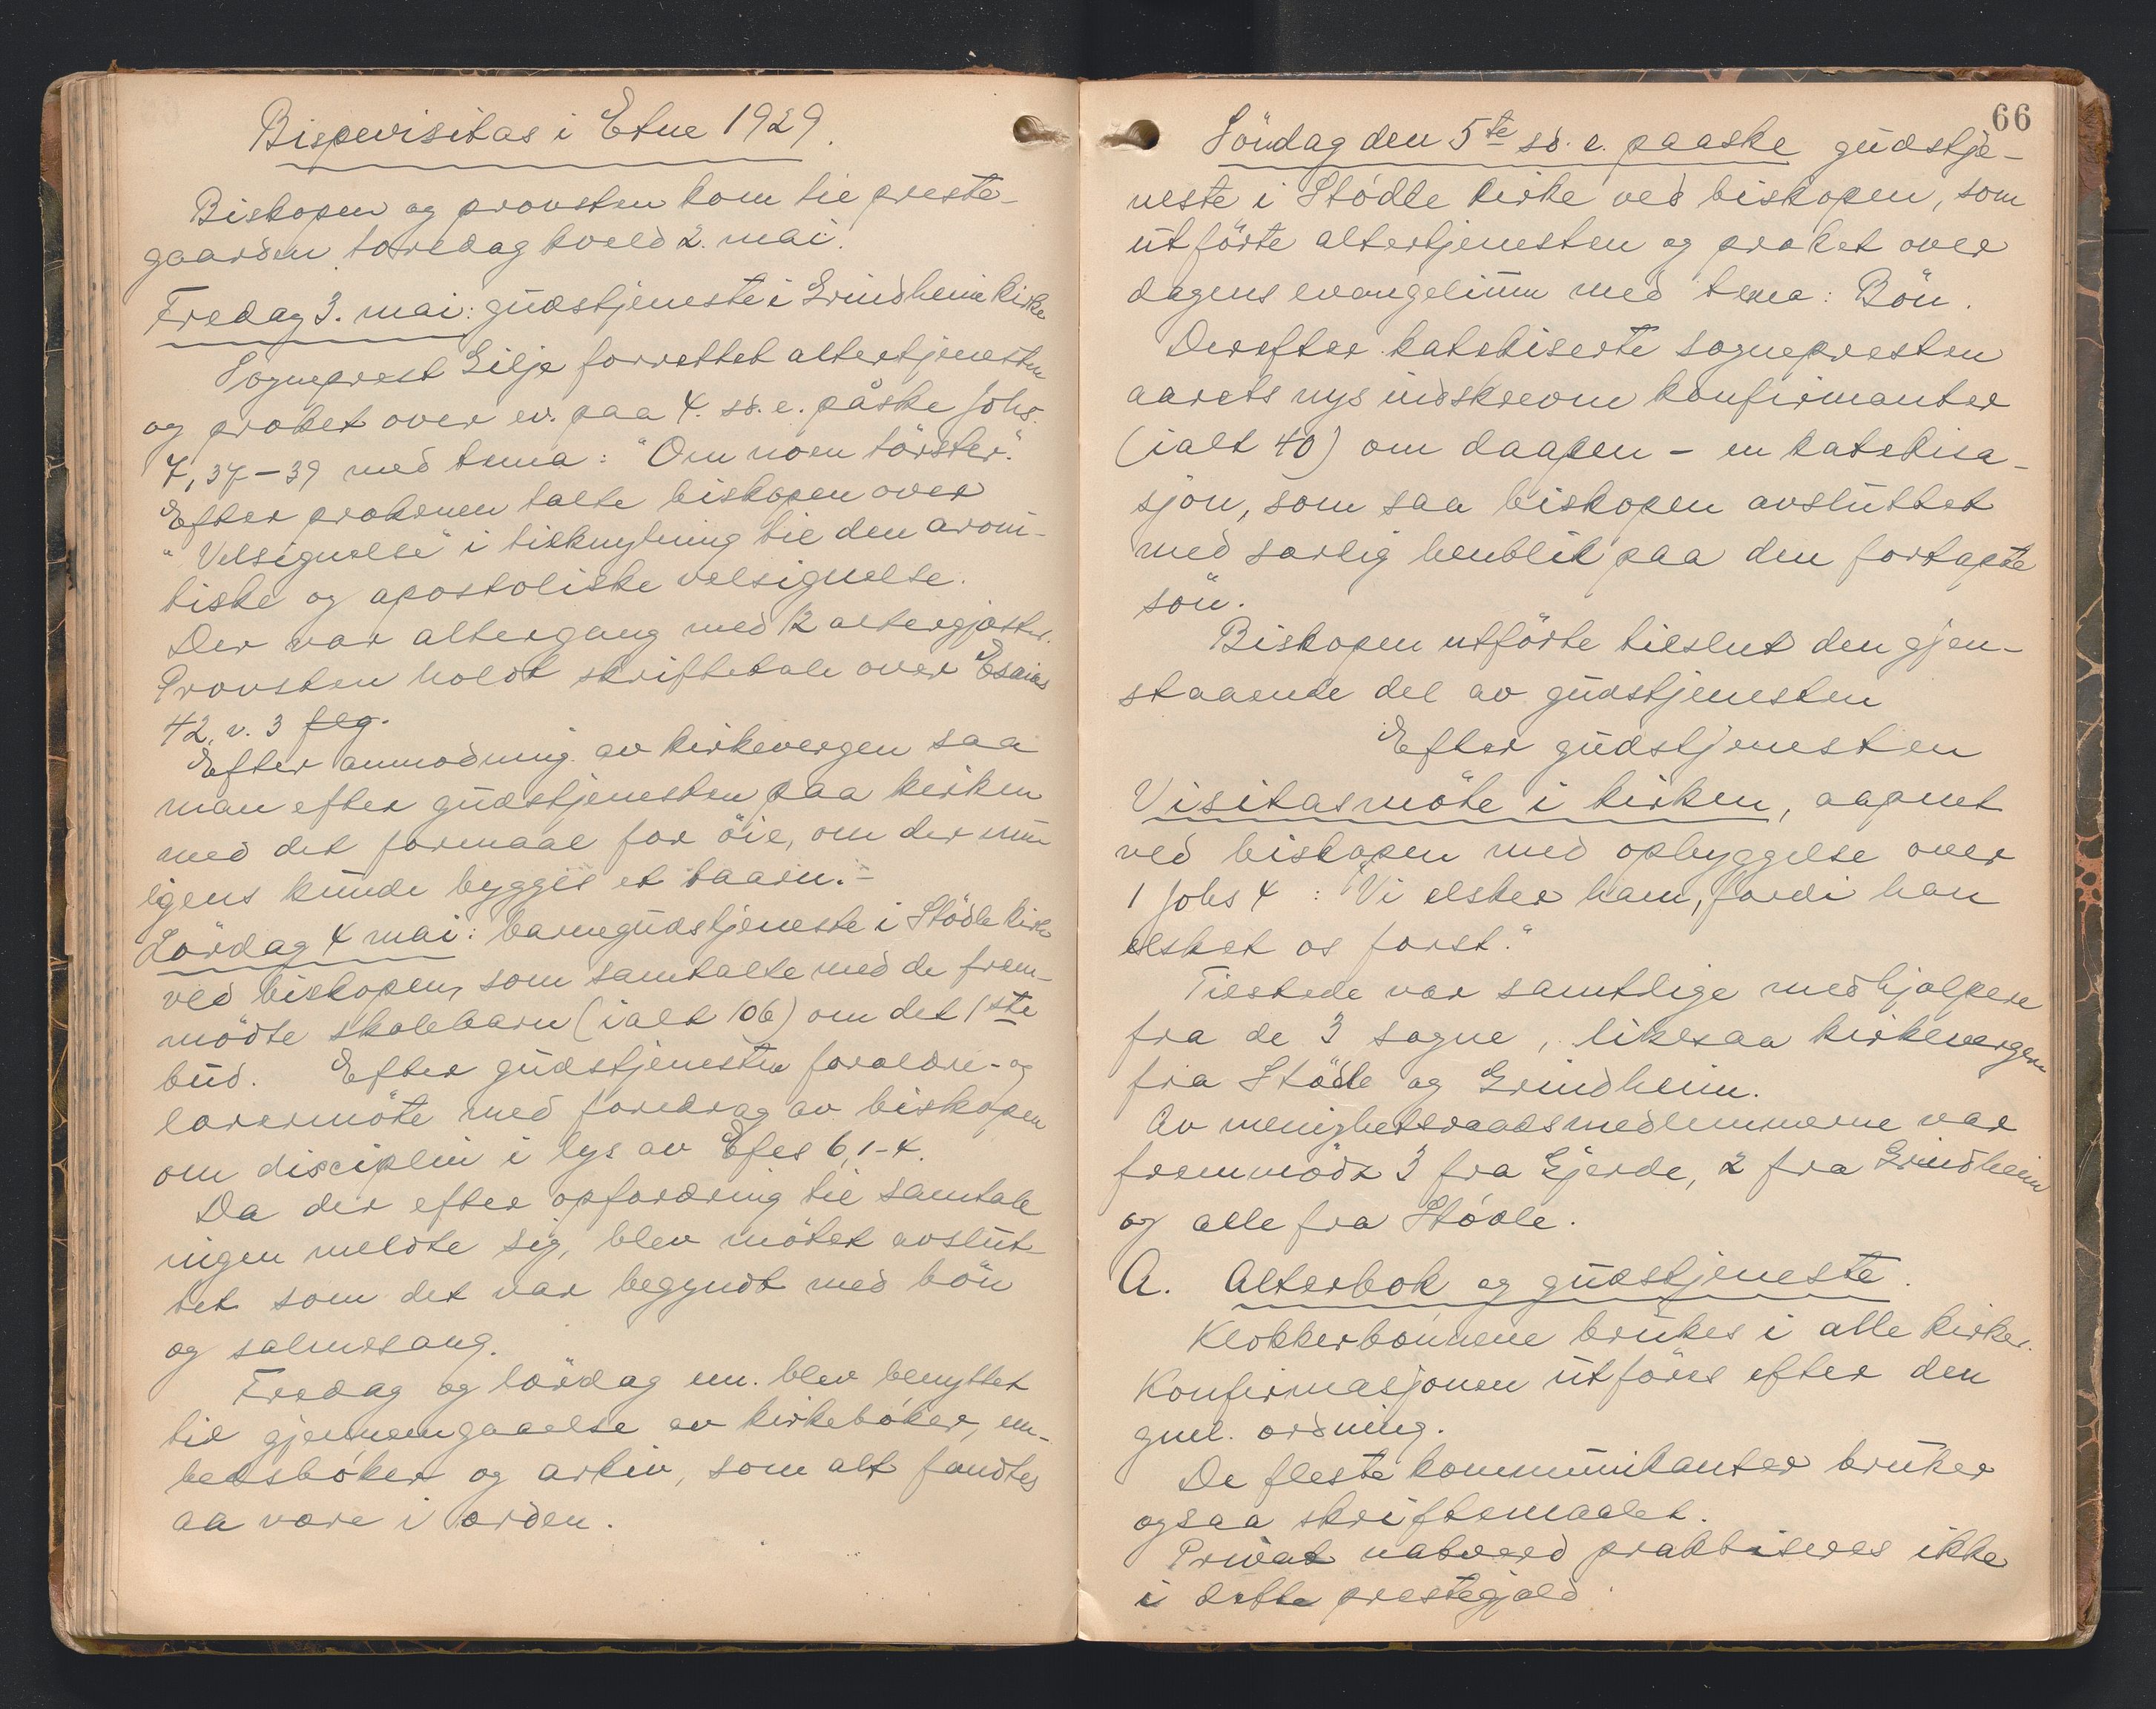 Bispevisitas i Etne 1929.
Biskopen og provsten kom til preste-
gaarden torsdag kveld 2. mai.
Fredag 3. mai: gudstjeneste i Grindheim kirke
Sogneprest Gilje forrettet altertjenesten
og præket over ev. paa 4. sø. e. påske Johs.
7, 37-39 med tema: "Om noen törster."
Efter prækenen talte biskopen over
"Velsignelse" i tilknytning til den aroni-
tiske og apostoliske velsignelse.
Der var altergang med 12 altergjæster.
Provsten holdt skriftetale over Esaias
42, v. 3 flg.
Efter anmodning av kirkevergen saa
man efter gudstjenesten paa kirken
med det formaal for öie, om der mu-
ligens kunde bygges et taarn.-
Lördag 4 mai: barnegudstjeneste i Stödle kirke
ved biskopen, som samtalte med de frem-
mödte skolebarn (ialt 106) om det 1ste
bud. Efter gudstjenesten foraldre- og
lærermöte med foredrag av biskopen
om disciplin i lys av Efes 6, 1-4.
Da der efter opfordring til samtale
ingen meldte sig, blev mötet avslut-
tet som det var begyndt med bön
og salmesang.
Fredag og lördag em. blev benyttet
til gjennemgaaelse av kirkebøker, em-
bedsbøker og arkiv, som alt fandtes
aa være i orden.
66
Söndag den 5te sö. e. paaske gudstje-
neste i Stödle kirke ved biskopen, som
utförte altertjenesten og præket over
dagens evangelium med tema: Bön.
Derefter katekiserte sognepresten
aarets nys indskrevne konfirmanter
(ialt 40) om daapen - en katekisa-
sjon, som saa biskopen avsluttet
med særlig henblik paa den fortapte
sön.
Biskopen utförte tilslut den gjen-
staaende del av gudstjenesten
Efter gudstjenesten
Visitasmöte i kirken, aapnet
ved biskopen med opbyggelse over
1 Johs 4: "Vi elsker ham, fordi han
elsket os först."
Tilstede var samtlige medhjælpere
fra de 3 sogne, likesaa kirkevergen
fra Stödle og Grindheim.
Av menighetsraadsmedlemmerne var
fremmödt 3 fra Gjerde, 2 fra Grindheim
og alle fra Stödle.
A. Alterbok og gudstjeneste.
Klokkerbönnene brukes i alle kirker.
Konfirmasjonen utföres efter den
gml. ordning.
De fleste kommunikanter bruker
ogsaa skriftemaalet.
Privat natverd praktiseres ikke
i dette prestegjæld.